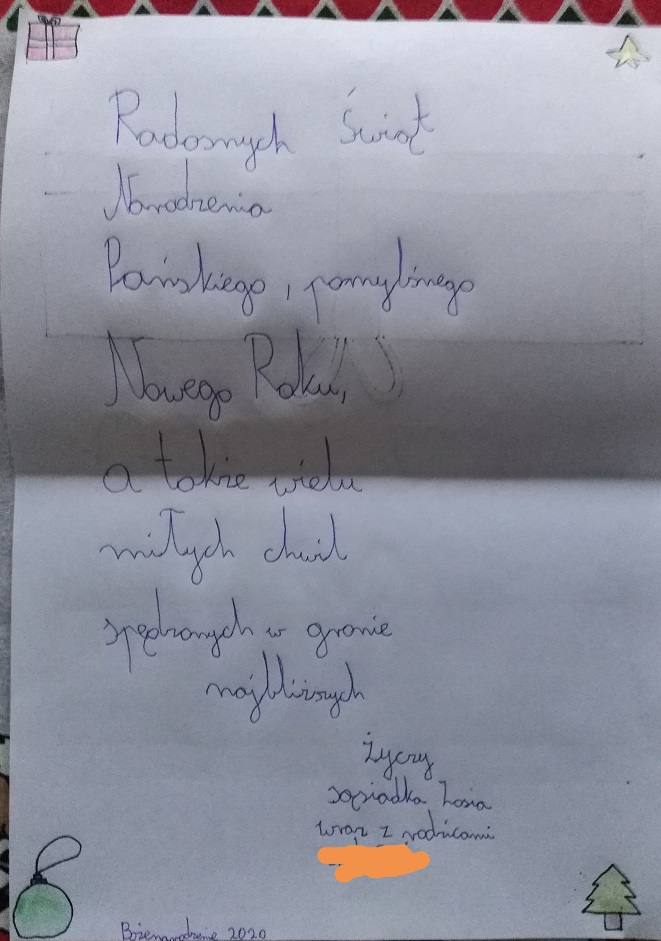 Radosnych Świąt
Narodzenia
Pańskiego, pomyślnego
Nowego Roku,
a także wielu
miłych chwil
spędzonych w gronie
najbliższych
Życzy
sąsiadka Zosia
wraz z rodzicami
Boże narodzenie 2020